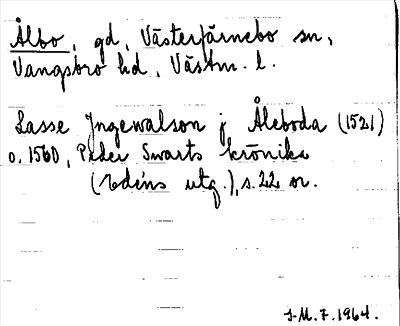 Ålbo, gd, Västerfärnebo sn,
Vangsbro hd, Västm. l.
Lasse Jngewalson j Åleboda (1521)
o. 1560, Peder Swarts krönika
(Edéns utg.), s. 22 or.
J-M. 7. 1964.